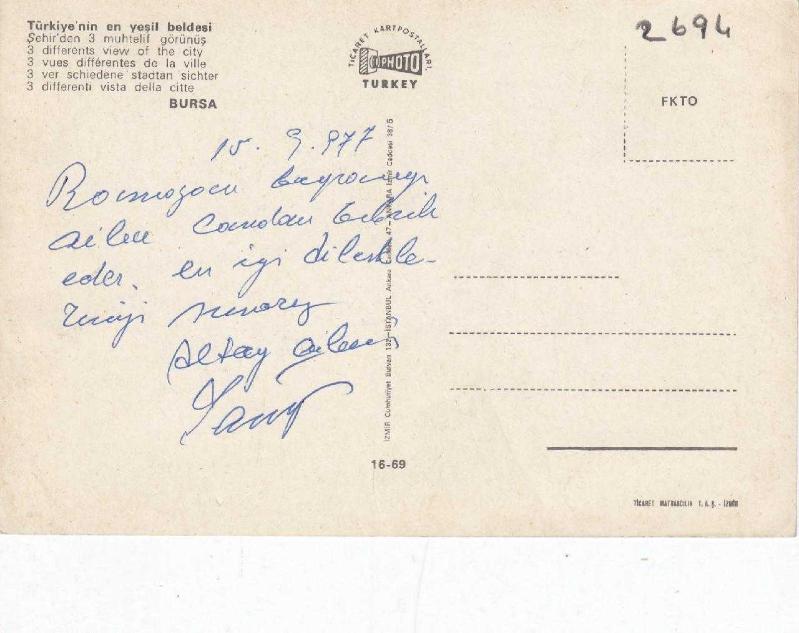 Türkiye'nin en yeşil beldesi
Şehir'den 3 muhtelif görünüş
3 differents view of the city
3 vues différentes de la ville
3 ver schiedene stadtan sichter
3 differenti vista della citte
BURSA
TİCARET KARTPOSTALLARI
PHOTO
TURKEY
2694
FKTO
15.9.977
Ramazan bayramınızı
ailece candan tebrik
eder, en iyi dilekle-
rimizi sunarız
Altay ailesi
İZMİR Cumhuriyet Bulvarı 132-İSTANBUL Ankara Caddesi 47-ANKARA İzmir Caddesi 38/5
16-69
TİCARET MATBAACILIK T.A.Ş. - İZMİR